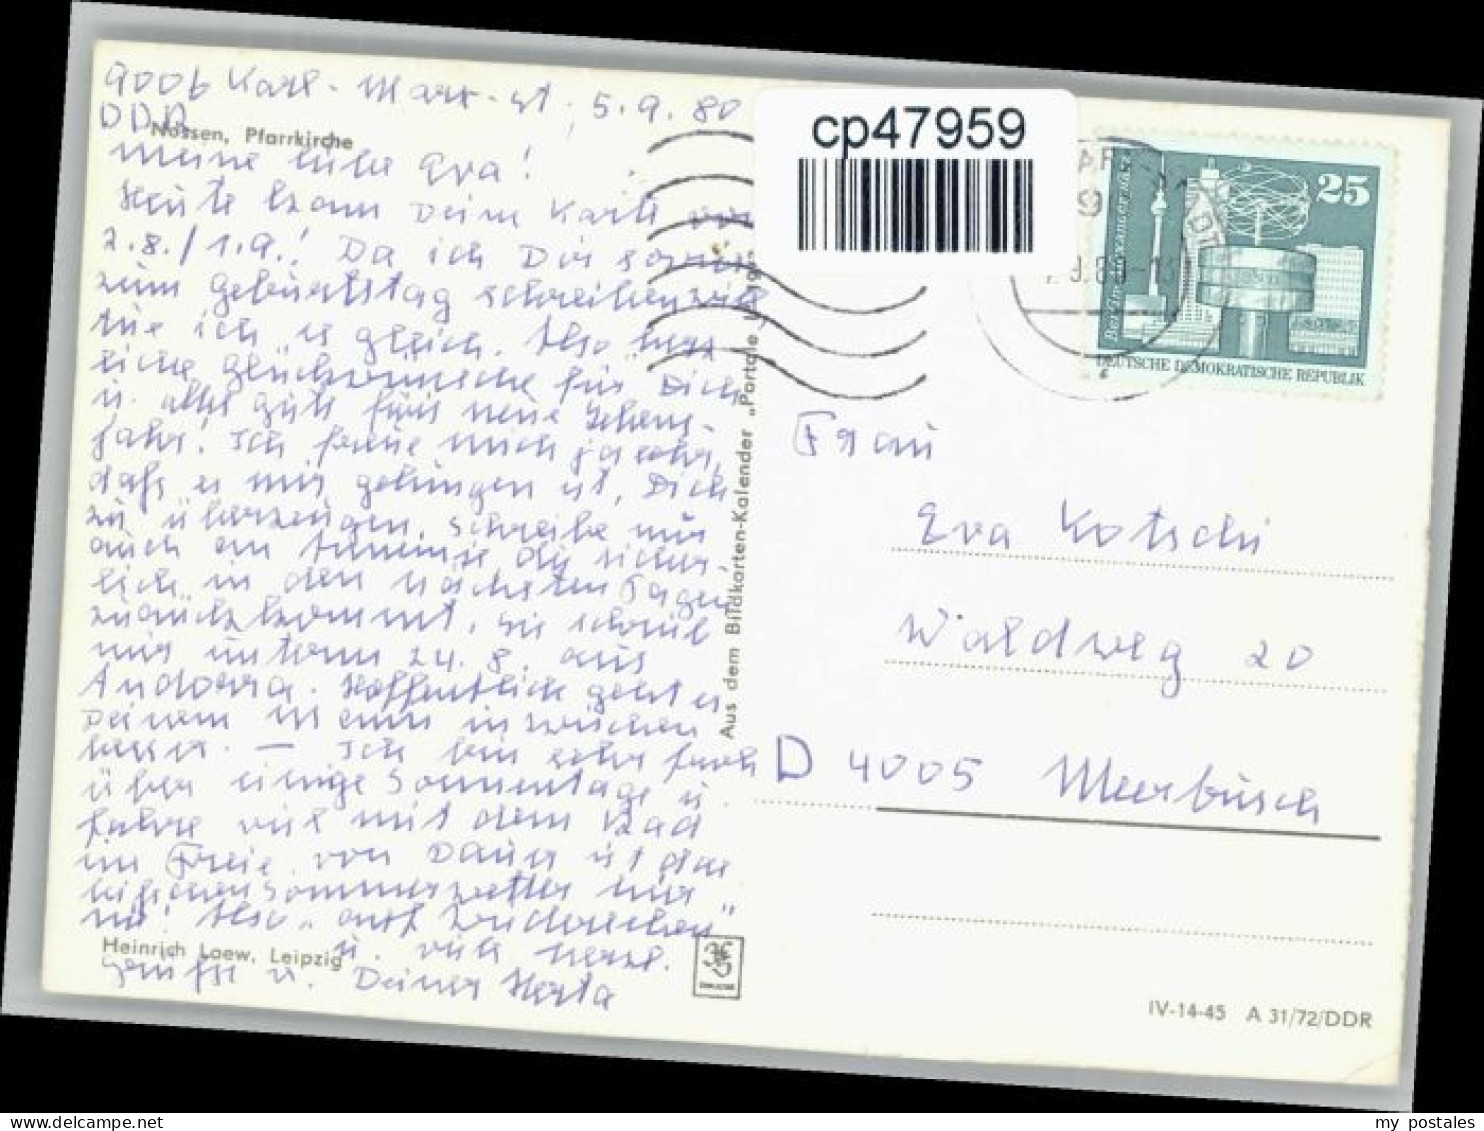 9006 Karl-Marx-St, 5.9.80
DDR
Nossen, Pfarrkirche
Meine liebe Eva!
Heute kam Deine Karte von
2.8./1.9.! Da ich Dir sowieso
zum Geburtstag schreiben will
tue ich es gleich. Also herz
liche Glückwünsche für Dich
u. alles Gute fürs neue Lebens-
jahr! Ich freue mich ja sehr,
daß es mir gelungen ist, Dich
zu überzeugen. Schreibe mir
auch an Annemie die sicher-
lich in den nächsten Tagen
zurückkommt. Sie schrieb
mir unterm 24.8. aus
Andorra. Hoffentlich geht es
Deinem inzwischen
besser. — Ich bin sehr froh
über einige Sonnentage u.
fahre viel mit dem Rad
im Freien von Dauer ist das
Sommerwetter hier
nie! Also „auf Wiedersehen"
u. viele herzl.
Heinrich Loew, Leipzig
Grüße v. Deiner Herta
Aus dem Bildkarten-Kalender „Portale,
cp47959
25
DEUTSCHE DEMOKRATISCHE REPUBLIK
Frau
Eva Kotschi
Waldweg 20
D 4005 Meerbusch
IV-14-45 A 31/72/DDR
my postales
www.delcampe.net